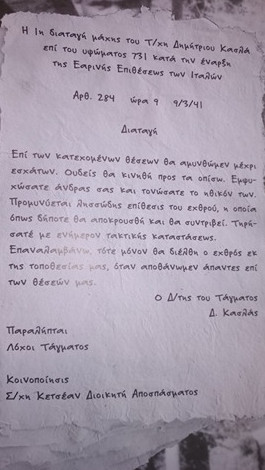 Η 1η διαταγή μάχης του Τ/χη Δημήτριου Κασλά
επί του υψώματος 731 κατά την έναρξη
της Εαρινής Επιθέσεως των Ιταλών
Αρθ. 284 ώρα 9 9/3/41
Διαταγή
Επί των κατεχομένων θέσεων θα αμυνθώμεν μέχρι
εσχάτων. Ουδείς θα κινηθή προς τα οπίσω. Εμψυ-
χώσατε άνδρας σας και τονώσατε το ηθικόν των.
Προμηνύεται λυσσώδης επίθεσις του εχθρού, η οποία
όπως δήποτε θα αποκρουσθή και θα συντριβεί. Τηρή-
σατέ με ενήμερον τακτικής καταστάσεως.
Επαναλαμβάνω, τότε μόνον θα διέλθη ο εχθρός εκ
της τοποθεσίας μας, όταν αποθάνωμεν άπαντες επί
των θέσεών μας.
Ο Δ/της του Τάγματος
Δ. Κασλάς
Παραλήπται
Λόχοι Τάγματος
Κοινοποίησις
Σ/χη Κετσέαν Διοικητή Αποσπάσματος